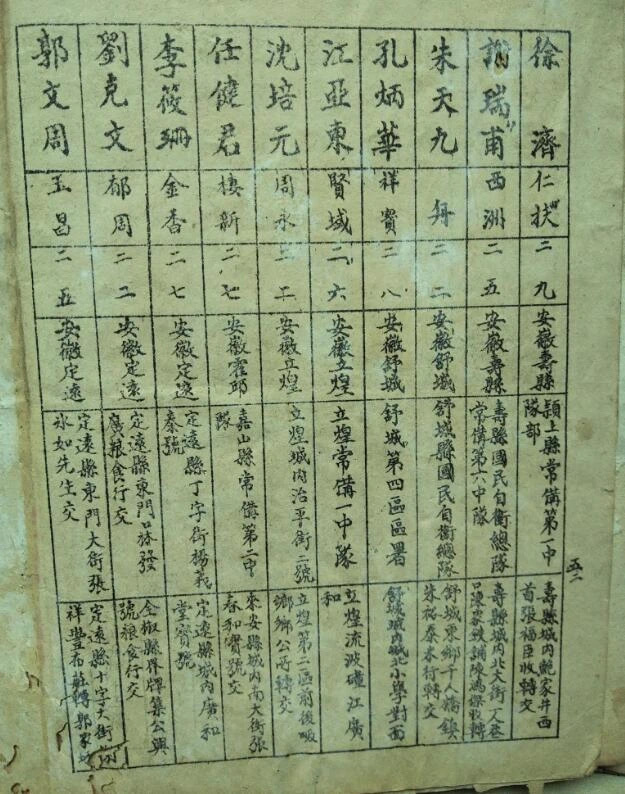 徐濟
仁扶
二九
安徽壽縣
潁上縣常備第一中
隊部
壽縣城內鮑家井西
首張楊臣收轉交
謝瑞甫
西洲
二五
安徽壽縣
壽縣國民自衛總隊
常備第六中隊
壽縣城內北大街一人巷
口陳
朱天九
舟
二二
安徽舒城
舒城縣國民自衛總隊
舒城東鄉千人橋鎮
朱裕泰米行轉交
孔炳華
祥賓
二八
安徽舒城
舒城第四區區署
舒城城內城北小學對面
江亞東
賢域
二六
安徽立煌
立煌常備一中隊
立煌流波䃥江廣
和
沈培元
周永
二二
安徽立煌
立煌城內治平街二號
立煌第二區前後畈
鄉鄉公所轉交
任健君
棲新
二七
安徽霍邱
嘉山縣常備第二中
隊
來安縣城內南大街張
春和寶號交
李筱珊
金香
二七
安徽定遠
定遠縣丁字街楊義
泰號
定遠縣城內廣和
堂寶號
劉克文
郁周
二二
安徽定遠
定遠縣東門口林發
廣粮食行交
全椒縣界牌集公興
號粮食行交
郭文周
玉昌
二五
安徽定遠
定遠縣東門大街張
冰如先生交
定遠縣十字大街
祥豐布莊轉郭家
五二